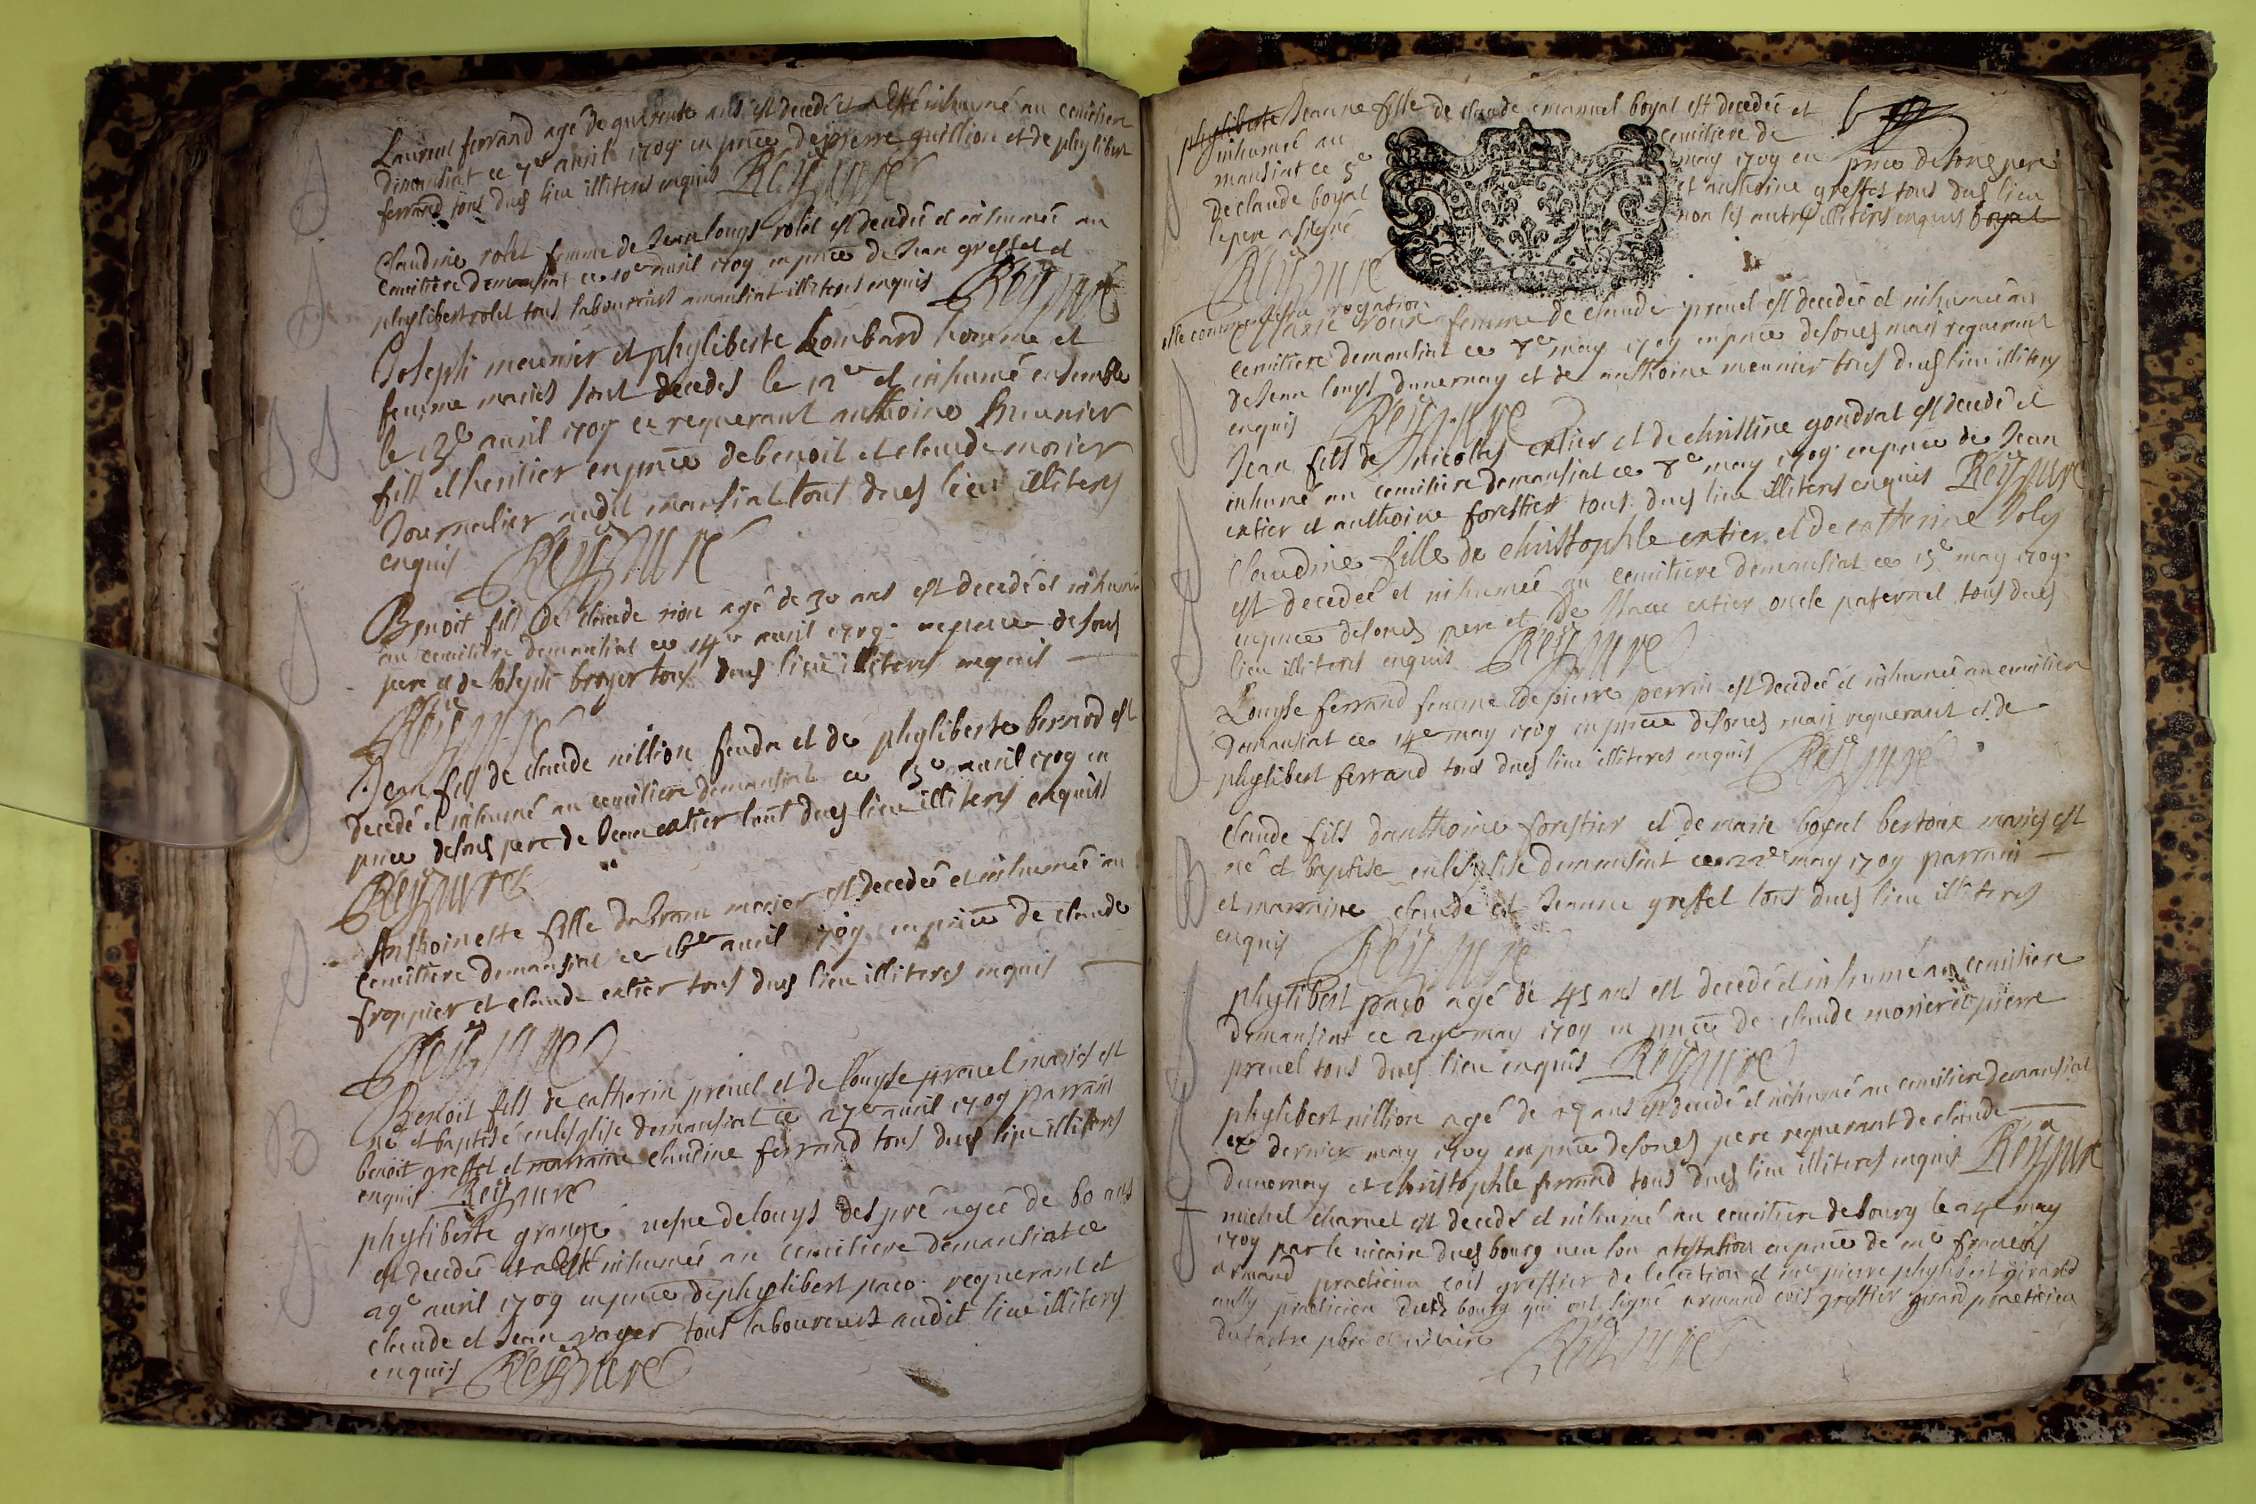 Laurent ferrand agé de quarente ans est decedé et a esté inhumé au cemitiere
demansiat ce 7e auril 1709 en pnce de pierre guillion et de phylibert
ferrand tous dud lieu illiteres enquis Reÿssure
Claudine rolet femme de Jean louys rolet est decedée et inhumée au
Cemitiere demansiat ce 10e auril 1709 en pnce de Jean greffet et
phylibert rolet tous laboureurs amansiat illiteres enquis Reÿssure
Joseph meunier et phyliberte Lombard homme et
femme mariés sont decedés le 12e et inhumé ensemble
le 13e auril 1709 ce requerant anthoine meunier
fils et heritier en pnce de benoit et claude morier
Journalier audit mansiat tout dud lieu illiteres
enquis Reÿssure
Benoit fils de claude nion agé de 30 ans est decedé et inhumé
au cemitiere demansiat ce 14e auril 1709 en pnce de soud
pere et de Joseph broyer tous dud lieu illiteres enquis
Reÿssure
Jean fils de claude nillion feuda et de phyliberte bernod est
decedé et inhumé au cemitiere demansiat ce 15e auril 1709 en
pnce desoud pere de Jean catier tout dud lieu illiteres enquis
Reÿssure
Anthoineste fille dabram morier est decedée et inhumée au
Cemitiere demansiat ce 16e auril 1709 en pnce de claude
froppier et claude catier tous dud lieu illiteres enquis
Reÿssure
Benoit fils de catherin preuel et de louyse preuel mariés est
né et baptisé en lesglise demansiat ce 27e auril 1709 parrain
benoit greffet et marraine claudine ferrand tous dud lieu illiteres
enquis Reÿssure
phyliberte grange uefue de louys des pré agée de 60 ans
est decedée et a esté inhumée au cemitiere demansiat ce
29e auril 1709 en pnce de phylibert paco requerant et
claude et Jean voyer tous laboureurs audit lieu illiteres
enquis Reÿssure
phyliberte Jeanne fille de claude emanuel boyat est decedée et
inhumée au cemitiere de
mansiat ce 5e may 1709 en pnce de soud pere
de claude boyat et anthoine greffet tous dud lieu
le pere a signé non les autres illiteres enquis boyat
Reÿssure
rogation
femme de claude preuel est decedée et inhumée au
cemitiere demansiat ce 8e may 1709 en pnce de soud mari requerant
de Jean louys duuernay et de anthoine meunier tous dud lieu illiteres
enquis Reÿssure
Jean fils de nicolas catier et de christine gondrat est decedé et
inhumé au cemitiere demansiat ce 8e may 1709 en pnce de Jean
catier et anthoine forestier tous dud lieu illiteres enquis Reÿssure
Claudine fille de christophle catier et de catherine Joly
est decedée et inhumée au cemitiere demansiat ce 13e may 1709
en pnce desoud pere et de catier oncle paternel tous dud
lieu illiteres enquis Reÿssure
Louyse ferrand femme de pierre perrin est decedée et inhumée au cemitiere
demansiat ce 14e may 1709 en pnce desoud mari requerant et de
phylibert ferrand tous dud lieu illiteres enquis Reÿssure
Claude fils danthoine forestier et de marie boyat bertoux mariés est
né et baptisé en lesglise demansiat ce 22e may 1709 parrain
et marraine claude et Jeanne greffet tous dud lieu illiteres
enquis Reÿssure
phylibert paco agé de 45 ans est decedé et inhumé au cemitiere
demansiat ce 29e may 1709 en pnce de claude morier et pierre
preuel tous dud lieu enquis Reÿssure
phylibert nillion agé de 27 ans est decedé et inhumé au cemitiere demansiat
ce dernier may 1709 en pnce desoud pere requerant de claude
duuernay et christophle ferrand tous dud lieu illiteres enquis Reÿssure
michel charuet est decedé et inhumé au cemitiere de bourg le 24e may
1709 par le vicaire dud bourg ueu son atestation en pnce de me francois
armand practicien cois greffier de lelection et me pierre phylibert girard
aussy practicien dud bourg qui ont signé armand cois greffier girard practicien
pbre et vicaire Reÿssure